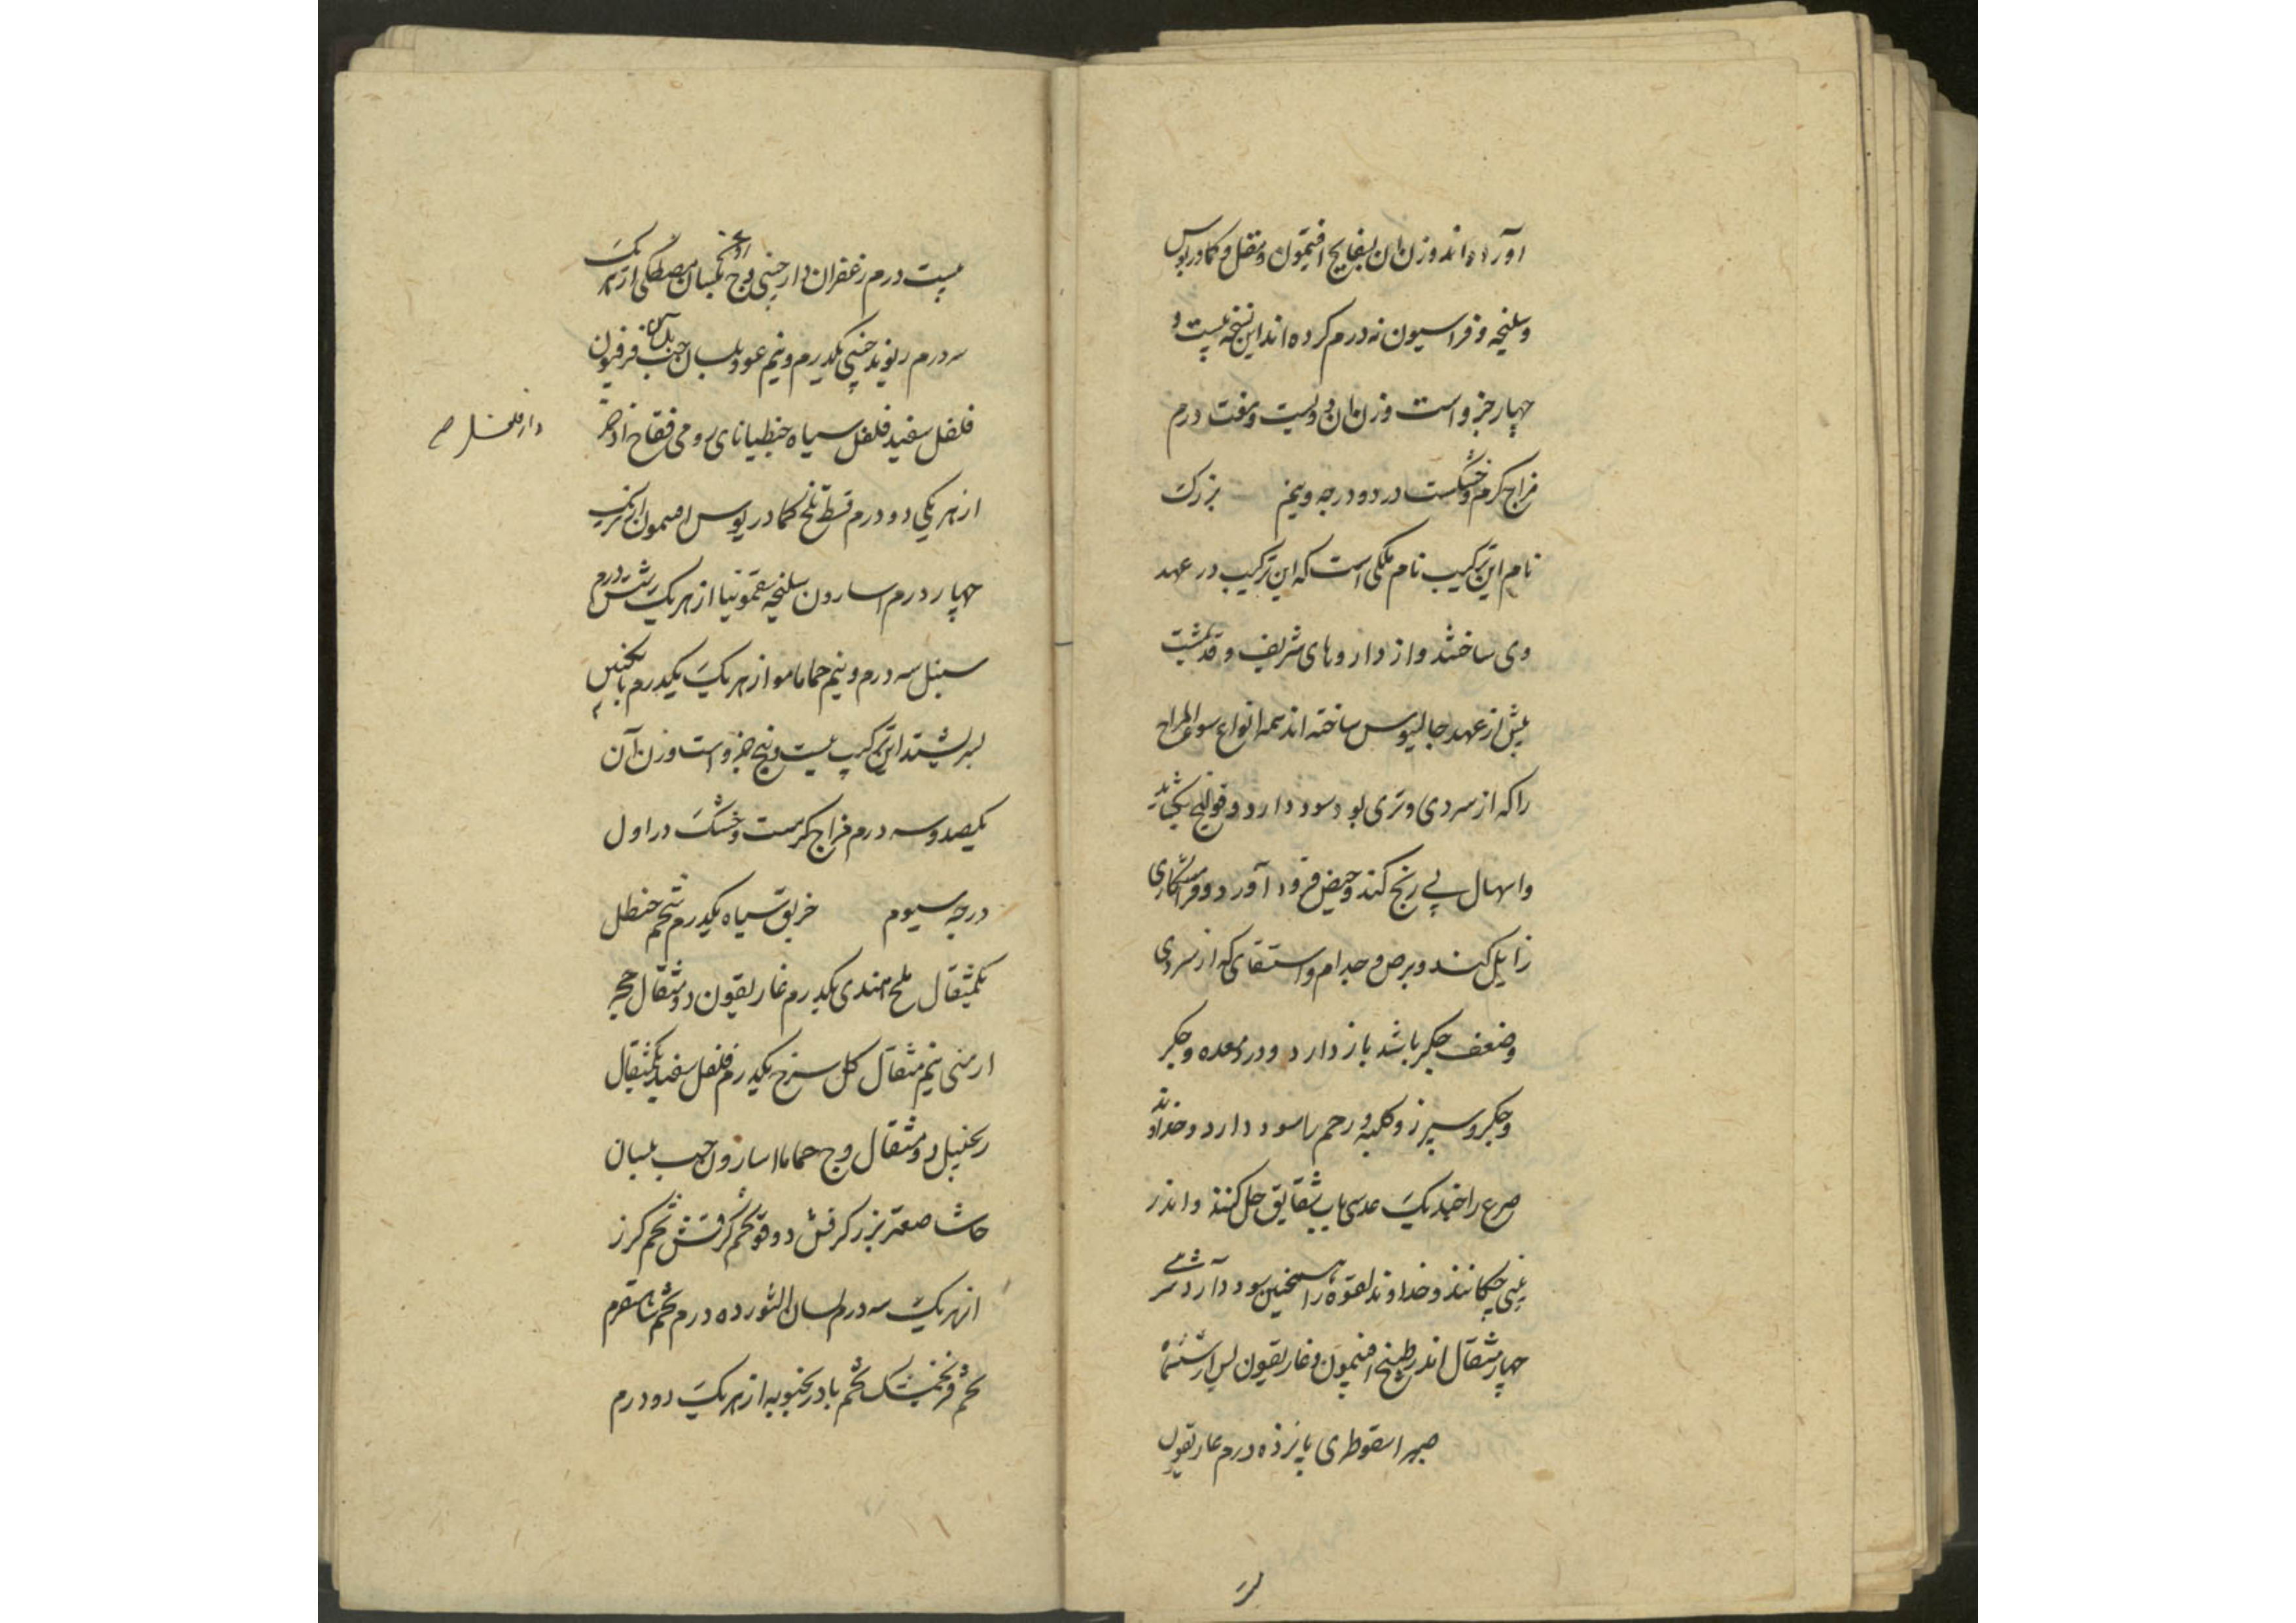 آورده اند وزن ان بسفایج افتیمون و مقل و کمادریوس
و سلیخه و فراسیون نه درم کرده اند این نسخه بیست و
چهار جزو است وزن ان دویست و هفت درم
مزاج گرم و خشکست در دو درجه و نیم بزرک
نام این ترکیب نام ملکی است که این ترکیب در عهد
وی ساختند و از داروهای شریف و قدیمست
پیش از عهد جالینوس ساخته اند همه انواع سوء المزاج
را که از سردی و تری بود سود دارد و قولنج بکشاید
و اسهال بی رنج کند و حیض فرود آورد و فراشکاری
زایل کند و برص و جدام و استسقای که از سردی
و ضعف جکر باشد باز دارد و درد معده و جکر
و جکر و سپرز و کلیه و رحم را سود دارد و خداوند
صرع را چند یک عدسی باب شقایق حل کنند و اندر
بینی چکانند و خداوند لقوه را همچنین سود دارد شربتی
چهار مثقال اندر طبیخ افتیمون و غاریقون پس از ششماه
صبر اسقوطری پانزده درم غاریقون
بیست درم زعفران دارچینی وج بلسان مصطکی از هر یک
سه درم ریوند چینی یکدرم و نیم عود بلسان حب بلسان فرفیون
فلفل سفید فلفل سیاه جنطیانای رومی فقاح اذخر
دار فلفل صح
از هر یکی دو درم قسط تلخ کمادریوس افتیمون از هر یک
چهار درم اسارون سلیخه سقمونیا از هر یک شش درم
سنبل سه درم و نیم حماما مو از هر یک یکدرم بانکبین
بسرشند این ترکیب بیست و پنج جزو است وزن آن
یکصد و سه درم مزاج گرمست و خشک در اول
درجه سیوم خربق سیاه یکدرم شحم حنظل
یکمثقال ملح هندی یکدرم غاریقون دو مثقال حجر
ارمنی نیم مثقال کل سرخ یکدرم فلفل سفید یکمثقال
زنجبیل دو مثقال وج حماما اسارون حب بلسان
حاشا صعتر بزر کرفس دوقو تخم کرفس تخم کرز
از هر یک سه درم لسان الثور ده درم تخم شاهسفرم
تخم فرنجمشک تخم بادرنجبویه از هر یک دو درم